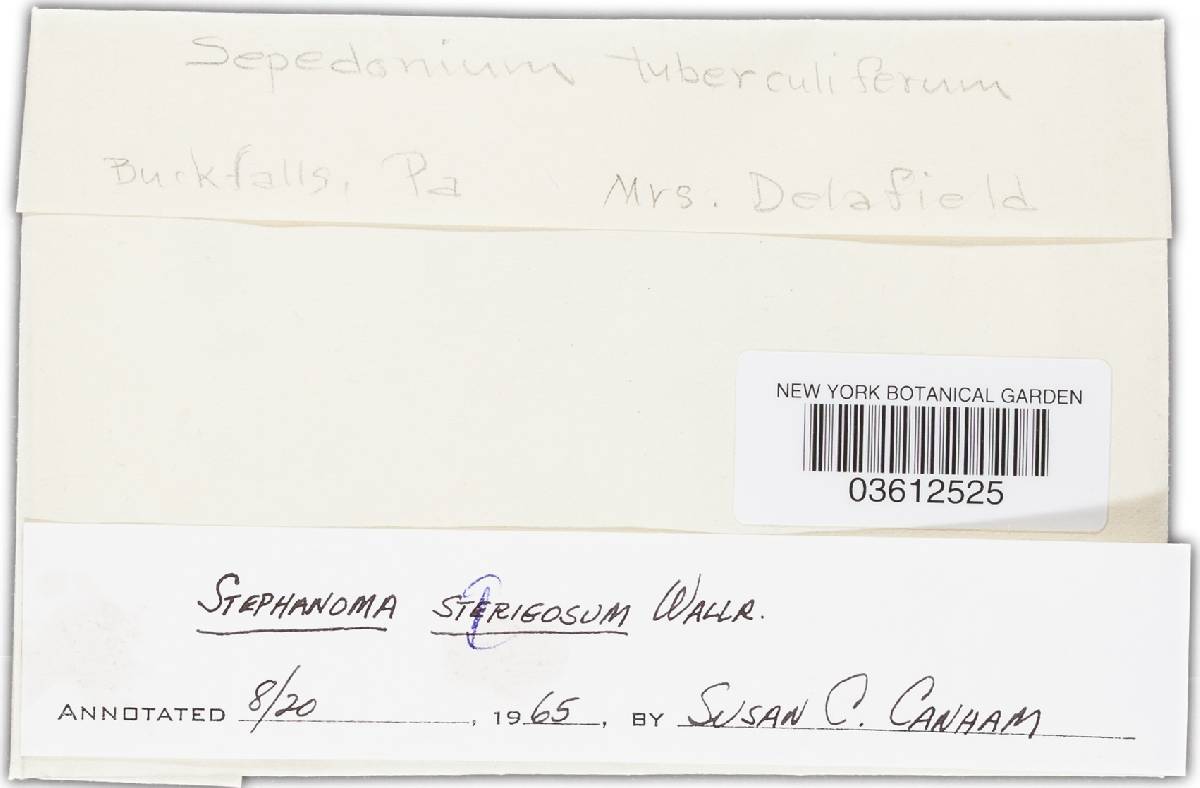 Sepedonium tuberculiferum
Buckfalls, Pa Mrs. Delafield
NEW YORK BOTANICAL GARDEN
03612525
STEPHANOMA STERIGOSUM WALLR.
ANNOTATED 8/20, 1965, BY SUSAN C. CANHAM